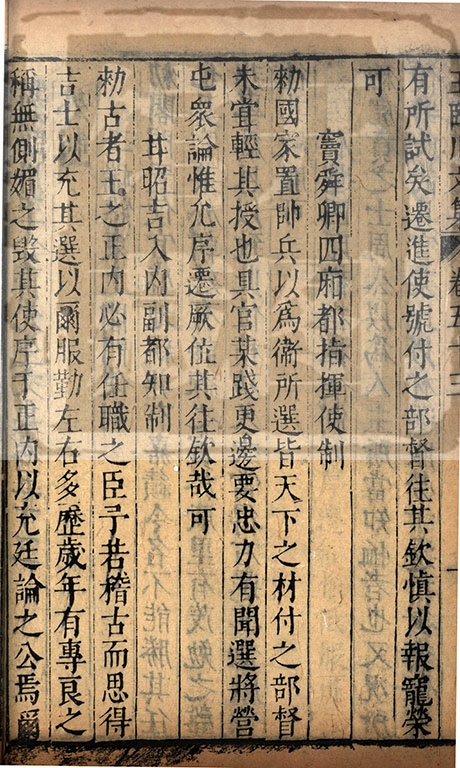 王臨川文集 卷五十三
有所試矣遷進使號付之部督往其欽慎以報寵榮
可
竇舜卿四廂都指揮使制
勑國家置帥兵以爲衞所選皆天下之材付之部督
未甞輕其授也具官某踐更邊要忠力有聞選將營
屯衆論惟允序遷厥位其往欽哉可
井昭吉入内副都知制
勑古者王之正内必有任職之臣予若稽古而思得
吉士以充其選以爾服勤左右多歷歲年有專良之
稱無側媚之毁其使序于正内以充廷論之公焉爾